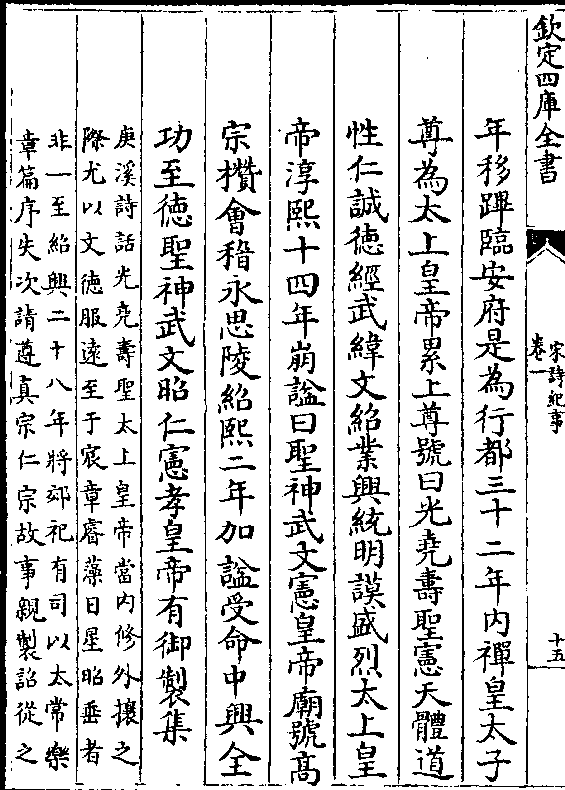 欽定四庫全書
宋詩紀事
卷一
十五
年移蹕臨安府是為行都三十二年内禪皇太子
尊為太上皇帝累上尊號曰光堯壽聖憲天體道
性仁誠徳經武緯文紹業興統明謨盛烈太上皇
帝淳熙十四年崩諡曰聖神武文憲皇帝廟號髙
宗攢會稽永思陵紹熙二年加諡受命中興全
功至徳聖神武文昭仁憲孝皇帝有御製集
庚溪詩話光堯壽聖太上皇帝當内修外攘之
際尤以文德服遠至于宸章睿藻日星昭垂者
非一至紹興二十八年將郊祀有司以太常樂
章篇序失次請遵真宗仁宗故事親製詔從之